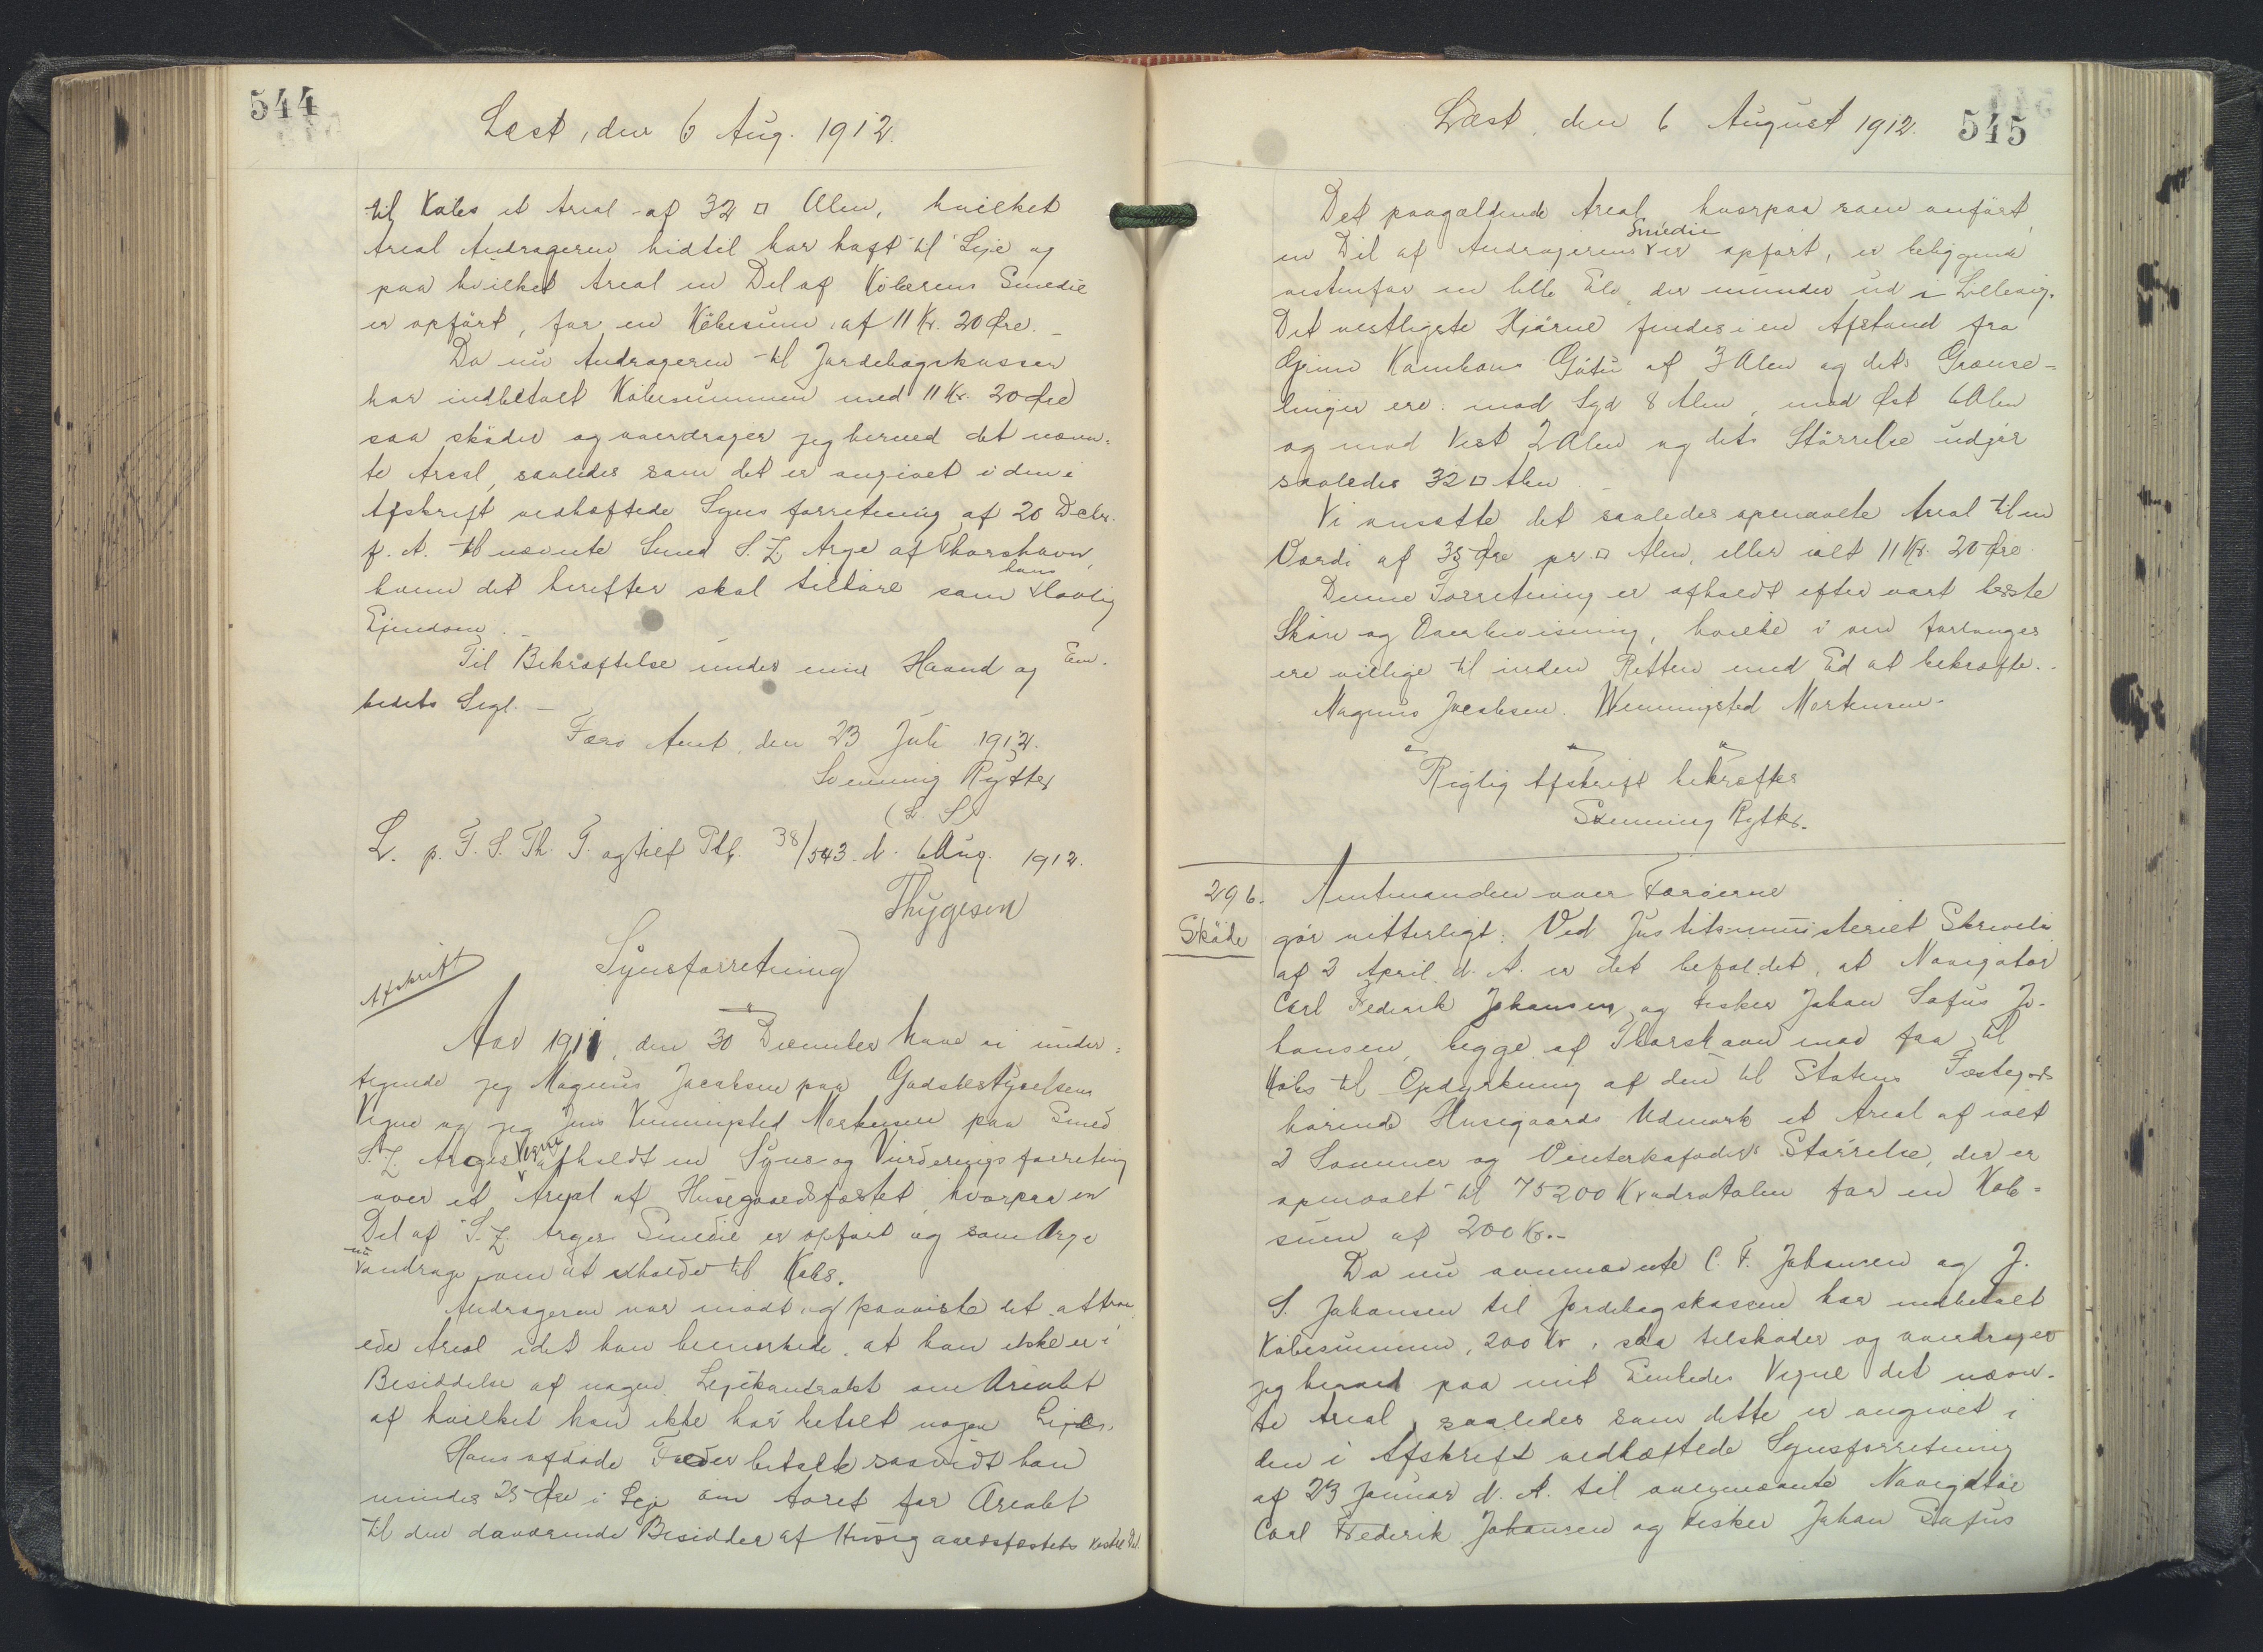 544
Læst, den 6 Aug. 1912.
til Købs et Areal af 32 □ Alen, hvilket
Areal Andrageren hidtil har haft til Leje og
paa hvilket Areal en Del af Köberens Smedie
er opført, for en Købesum af 11 Kr. 20 Øre. –
Da nu Andrageren til Jordebogskassen
har indbetalt Købesummen med 11 Kr. 20 Øre
saa skøder og overdrager jeg herved det nævn=
te Areal, saaledes som det er angivet i den i
Afskrift vedhæftede Synsforretning af 20 Decbr.
f. A. til nævnte Smed S. Z. Arge af Thorshavn,
hvem det herefter skal tilhøre som hans lovlig
Ejendom. –
Til Bekræftelse under min Haand og Em-
bedets Segl. –
Færø Amt, den 23 Juli 1912.
Svenning Rytter
(L. S.)
L. p. F. S. Th. T. og tilf Ptk. 38/543 d. 6 Aug. 1912.
Thygesen
Afskrift
Synsforretning
Aar 1911, den 30 December have vi under=
tegnede jeg Magnus Jacobsen paa Godsbestyrelsens
Vegne og jeg Jens Venningsted Mortensen paa Smed
S. Z. Arges Vegne afholdt en Syns og Vurderingsforretning
over et Areal af Husegaardsfæstet, hvorpaa en
Del af S. Z. Arges Smedie er opført og som Arge
nu andrage om at erholde til Købs.
Andrageren var mødt og paaviste det attraa
ede Areal idet han bemærkede, at han ikke er i
Besiddelse af nogen Lejekontrakt om Arealet
af hvilket han ikke har betalt nogen Leje.
Hans afdøde Fader betalte saavidt han
mindes 25 Øre i Leje om Aaret for Arealet
til den daværende Besidder af Husegaardsfæstets vestre Del.
545
Læst, den 6 August 1912.
Det paagældende Areal, hvorpaa som anført,
en Del af Andragerens Smedie er opført, er beliggende
vestenfor en lille Elv, der munder ud i Lillevig.
Det vestligste Hjørne findes i en Afstand fra
Kambans Gøtu af 3 Alen og dets Grænse=
linjer ere: mod Syd 8 Alen, mod Øst 6 Alen
og mod Vest 2 Alen og dets Størrelse udgør
saaledes 32 □ Alen. –
Vi ansatte det saaledes opmaalte Areal til en
Værdi af 35 Øre pr. □ Alen, eller ialt 11 Kr. 20 Øre.
Denne Forretning er afholdt efter vort bedste
Skøn og Overbevisning, hvilke vi om forlanges
ere villige til inden Retten med Ed at bekræfte. –
Magnus Jacobsen. Wenningsted Mortensen.
Rigtig Afskrift bekræftes
Svenning Rytter.
296.
Skøde
Amtmanden over Færøerne
gør vitterligt: Ved Justitsministeriet Skrivelse
af 2 April d. A. er det befalet, at Navigatør
Carl Frederik Johansen og Fisker Johan Sofus Jo-
hansen, begge af Thorshavn maa faa til
Købs til Opdyrkning af den til Statens Fæstegods
hørende Husegaards Udmark et Areal af ialt
2 Sommer og Vinterkofoders Størrelse, der er
opmaalt til 75200 Kvadratalen for en Købe=
sum af 200 Kr. –
Da nu ovennævnte C. F. Johansen og J.
S. Johansen til Jordebogskassen har indbetalt
Købesummen, 200 Kr, saa tilskøder og overdrager
jeg herved paa mit Embedes Vegne det nævn-
te Areal, saaledes som dette er angivet i
den i Afskrift vedhæftede Synsforretning
af 23 Januar d. A. til ovennævnte Navigatør
Carl Frederik Johansen og Fisker Johan Sofus